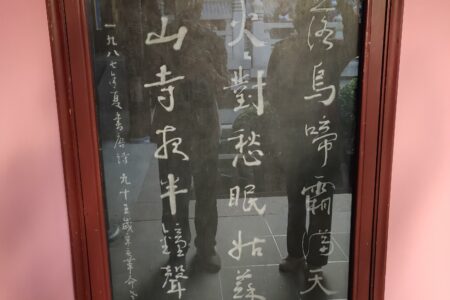 落烏啼霜滿天
火對愁眠姑蘇
山寺夜半鐘聲
一九八七年夏書唐詩 九十五歲辛亥革命